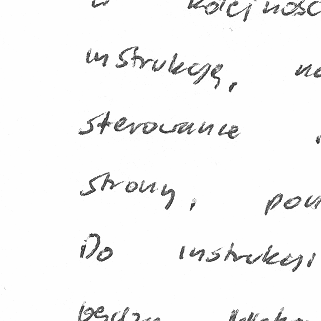 w kolejność
instrukcję, na
sterowanie
strony, pon
Do instrukcji
będzie